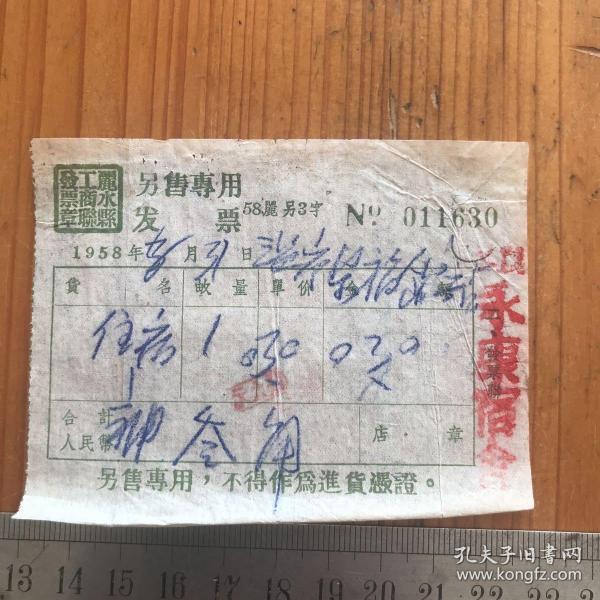 麗水縣工商聯發票章
另售專用
发 票 58麗 另3字 Nº 011630
1958年 8 月 31 日
貨 名 數 量 單 价 金 額
住宿 1 030 030
合 計
人民幣 叁角 店 章
永 宿舍
另售專用，不得作為進貨憑證。
13 14 15 16 17 18 19 20 21 22
孔夫子旧书网
www.kongfz.com